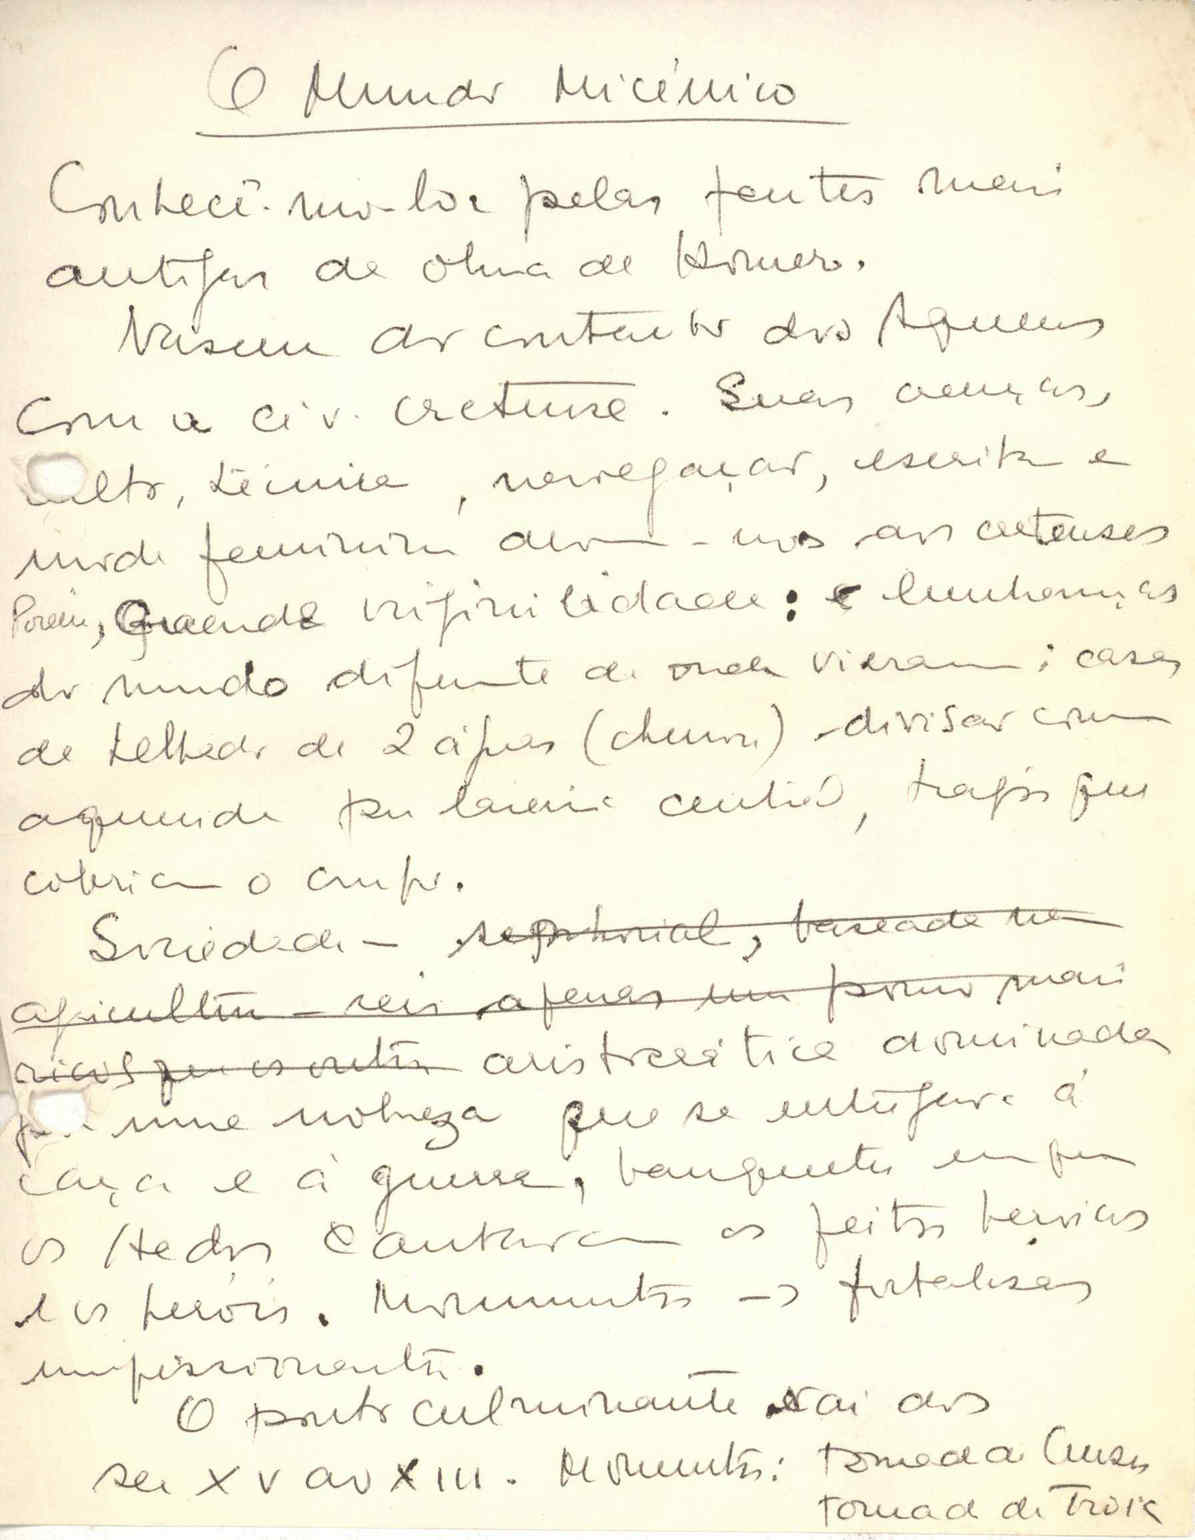 O Mundo Micénico
Conhecê-mo-los pelas fontes mais
antigas da obra de Homero.
Nasceu do contacto dos Aqueus
com a civ. cretense. Suas crenças,
culto, técnica, navegação, escrita e
moda feminina devem-nos aos cretenses
Porém, Grande originalidade: lembranças
do mundo diferente de onde vieram; casas
de telhado de 2 águas (chuva) divisão com
aquecida por lareira central, trajos que
cobriam o corpo.
Sociedade – senhorial, baseada na
agricultura – reis apenas um pouco mais
ricos que os outros aristocrática dominada
por uma nobreza que se entregava à
caça e à guerra, banquetes em que
os Aedos cantavam os feitos heróicos
e os heróis. Monumentos -> fortalezas
impressionantes.
O ponto culminante vai dos
sec XV ao XIII. Momentos: tomada Cnossos
tomada de Troia